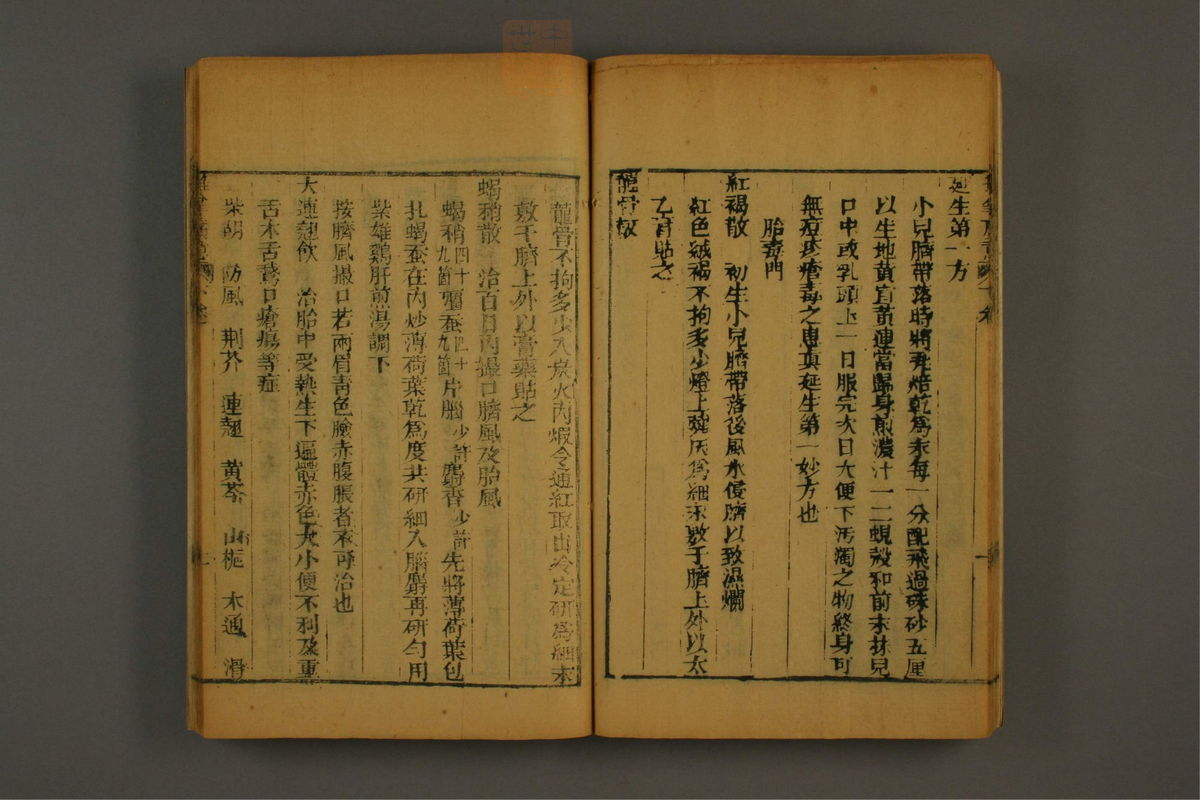 延生第一方
小兒臍帶落時將來焙乾為末每一分配飛過硃砂五厘
以生地黃宣黃連當歸身煎濃汁一二蜆殼和前末抹兒
口中或乳頭上一日服完次日大便下汚濁之物終身可
無痘疹瘡毒之患真延生第一妙方也
胎毒門
紅褐散 初生小兒臍帶落後風水侵臍以致濕爛
紅色絨褐不拘多少燈上燒灰爲細末敷于臍上外以太
乙膏貼之
龍骨散
龍骨不拘多少入炭火內煆令通紅取出冷定研爲細末
敷于臍上外以膏藥貼之
蝎稍散 治百日內撮口臍風及胎風
蝎稍四十九箇 殭蚕四十九箇 片腦少許 麝香少許 先將薄荷葉包
扎蝎蚕在內炒薄荷葉乾爲度共研細入腦麝再研勻用
紫雄鷄肝煎湯調下
按臍風撮口若兩眉靑色臉赤腹脹者不可治也
大連翹飲 治胎中受熱生下遍體赤色大小便不利及重
舌木舌鵞口瘡瘍等症
柴胡 防風 荆芥 連翹 黃芩 山梔 木通 滑